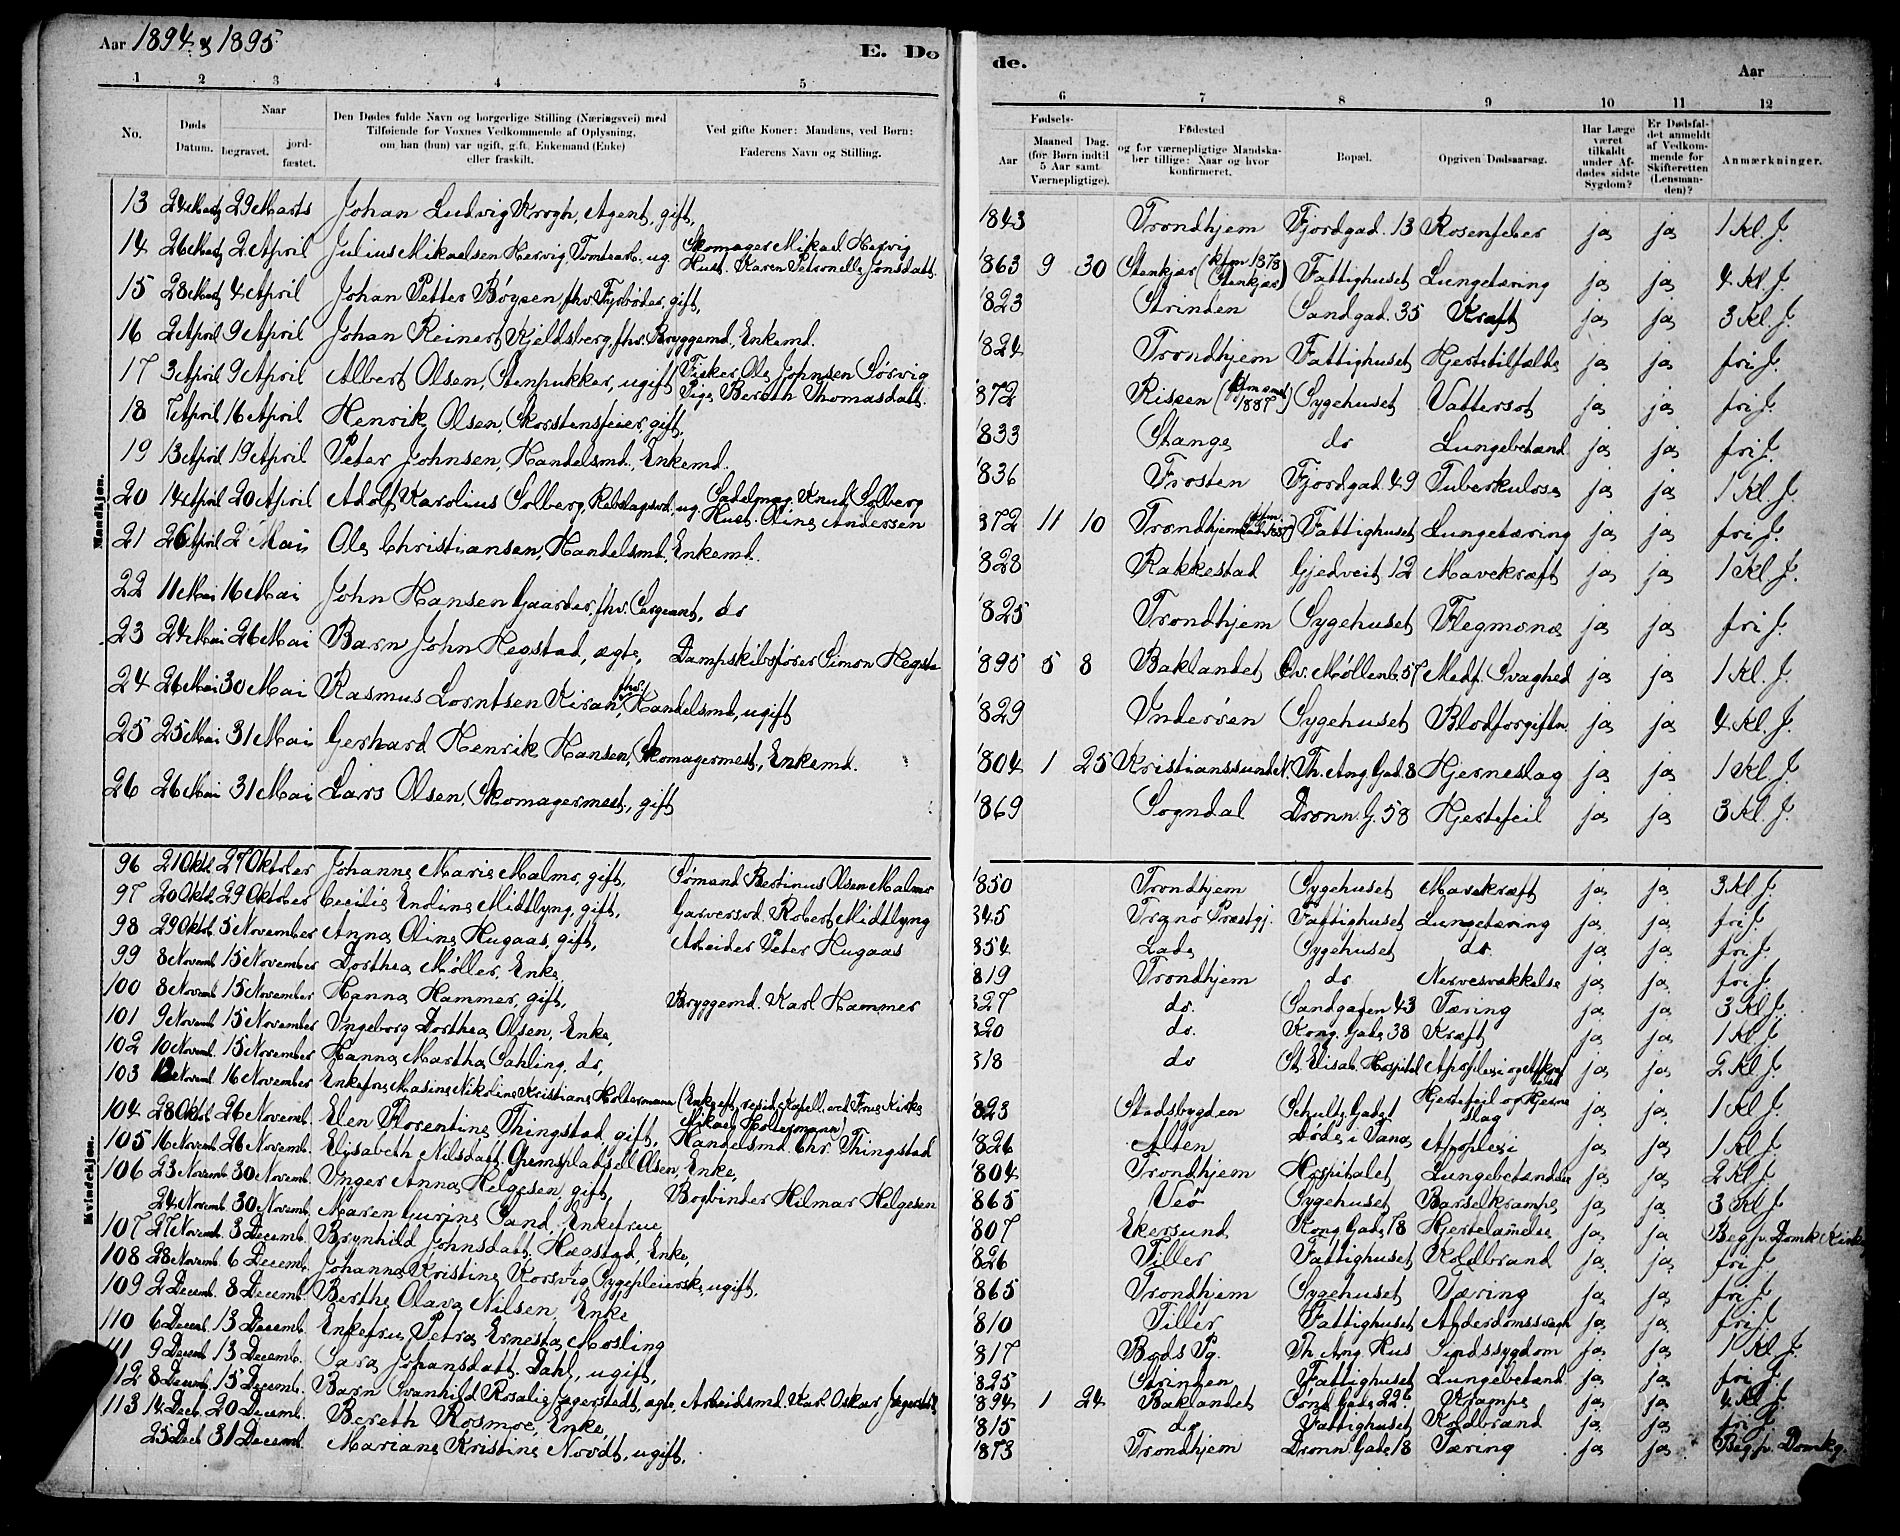 Aar 1894 & 1895
E. Dø
de.
Aar
1 2 3 4 5
6 7 8 9 10 11 12
No.
Døds Datum.
Naar
begravet.
jordfæstet.
Den Dødes fulde Navn og borgerlige Stilling (Næringsvei) med
Tilføiende for Voxnes Vedkommende af Oplysning,
om han (hun) var ugift, gift, Enkemand (Enke)
eller fraskilt.
Ved gifte Koner: Mandens, ved Børn:
Faderens Navn og Stilling.
Fødsels-
Aar
Maaned Dag.
(for Børn indtil
5 Aar samt
Værnepligtige).
Fødested
og for værnepligtige Mandskaber tillige: Naar og hvor
konfirmeret.
Bopæl.
Opgiven Dødsaarsag.
Har Læge været tilkaldt under Afdødes sidste Sygdom?
Er Dødsfaldet anmeldt af Vedkommende for Skifteretten (Lensmanden)?
Anmærkninger.
Mandkjøn.
13 24 Marts 29 Marts Johan Ludvig Krogh, Agent, gift, 1843 Trondhjem Fjordgad. 13 Rosenfeber ja ja 1 Kl. J.
14 26 Marts 2 April Julius Mikaelsen Hervig, Tomtearb. ug. Skomager Mikael Hervig Hust. Karen Petronelle Jonsdatt. 1863 9 30 Stenkjær (kfm 1878 Stenkjær) Fattighuset Lungetæring ja ja 4 Kl. J.
15 28 Marts 4 April Johan Petter Bøysen, fhv. Fyrbøder, gift, 1823 Strinden Sandgad. 35 Kræft ja ja 3 Kl. J.
16 2 April 9 April Johan Reinert Kjeldsberg, fhv. Bryggemd., Enkemd. 1824 Trondhjem Fattighuset Hjertetilfælde ja ja fri J.
17 3 April 9 April Albert Olsen, Stenpukker, ugift Fisker Ole Johnsen Sørvig Pige Bereth Thomasdatt. 1872 Rissen 1887 Sygehuset Vattersot ja ja fri J.
18 7 April 16 April Henrik Olsen, Skorstensfeier, gift, 1833 Stange do Lungebetænd. ja ja fri J.
19 13 April 19 April Peter Johnsen, Handelsmd., Enkemd. 1836 Frosten Fjordgad. 49 Tuberkulose ja ja 1 Kl. J.
20 14 April 20 April Adolf Karolius Solberg, Rebslagersvd. ug. Sadelmag. Knud Solberg Hust. Oline Andersen 1872 11 10 Trondhjem Fattighuset Lungetæring ja ja fri J.
21 26 April 2 Mai Ole Christiansen, Handelsmd. Enkemd. 1828 Rakkestad Gjedveit 12 Mavekræft ja ja 1 Kl. J.
22 11 Mai 16 Mai John Hansen Gaarder, fhv. Sergeant, do 1825 Trondhjem Sygehuset Flegmone ja ja fri J.
23 24 Mai 26 Mai Barn John Hegstad, ægte, Dampskibsfører Simon Hegsta 1895 5 8 Baklandet Øv. Møllenb. 57 Medf. Svaghed ja ja 1 Kl. J.
24 26 Mai 30 Mai Rasmus Lorntsen Kiran, fhv. Handelsmd, ugift 1829 Inderøen Sygehuset Blodforgiftn. ja ja 4 Kl. J.
25 25 Mai 31 Mai Gerhard Henrik Hansen, Skomagermest., Enkemd. 1804 1 25 Kristianssund N. Th. Ang. Gad. 8 Hjerneslag ja ja 1 Kl. J.
26 26 Mai 31 Mai Lars Olsen, Skomagermest., gift 1869 Sogndal Dronn. G. 58 Hjertefeil ja ja 3 Kl. J.
Kvindekjøn.
96 21 Oktb. 27 Oktober Johanne Marie Malmo, gift, Sømand Bertinus Olsen Malmo 1850 Trondhjem Sygehuset Mavekræft ja ja 3 Kl J.
97 20 Oktb. 29 Oktober Cecilie Endine Midtlyng, gift, Garversvd. Robert Midtlyng 845 Tranø Præstgj. Fattighuset Lungetæring ja ja fri J.
98 29 Oktb. 5 November Anna Oline Hugaas, gift, Arbeider Peter Hugaas 854 Lade Sygehuset do. ja ja fri J.
99 8 Novemb. 15 November Dorthea Møller, Enke, 819 Trondhjem do Nervesvækkelse ja ja fri J.
100 8 Novemb. 15 November Hanna Hammer, gift, Bryggemd. Karl Hammer 827 do. Sandgaden 43 Tæring ja ja 3 Kl. J.
101 9 Novemb 15 November Ingeborg Dorthea Olsen, Enke, 820 do. Kong. Gade 38 Kræft ja ja 1 Kl J.
102 10 Novemb. 15 November Hanna Martha Sahling, do, 818 do St. Elisab. Hospital Apoplexi ja ja 2 Kl J.
103 12 Novemb 16 November Enkefru Masine Nikoline Kristiane Holtermann (Enke eft. resid. Kapell. ved Frue Kirke Mikael Holtermann) 1823 Stadsbygden Schultz Gade 7 Hjertefeil og Hjerne slag ja ja 1 Kl J.
104 28 Oktb. 26 Novemb. Elen Florentine Thingstad, gift, Handelsmd. Chr. Thingstad 1826 Alten Døde i Vanø Apoplexi ja ja 1 Kl J.
105 16 Novemb. 26 Novemb. Elisabeth Nilsdatt. Gremspladsell Olsen, Enke, 1804 Trondhjem Hospitalet Lungebetændelse ja ja 2 Kl J.
106 23 Novemb. 30 Novemb. Inger Anna Helgesen, gift, Bogbinder Hilmar Helgesen 1865 Veø Sygehuset Barselkrampe ja ja 3 Kl J
24 Novemb. 30 Novemb. Maren Gurine Sand, Enkefrue 1807 Ekersund Kong. Gade 78 Hjertelamelse ja ja Beg. p. Domk Kirke
107 27 Novemb. 3 Decemb. Brynhild Johnsdatt. Hægstad, Enke, 1826 Tiller Fattighuset Koldbrand ja ja fri J.
108 28 Novemb. 6 Decemb. Johanna Kristine Korsvig, Sygepleierske, ugift, 1865 Trondhjem Sygehuset Tæring ja ja fri J.
109 2 Decemb. 8 Decemb. Berthe Olava Nilsen, Enke 1810 Tiller Fattighuset Alderdomssvagh ja ja fri J.
110 6 Decemb. 13 Decemb. Enkefru Petra Ernesta Mosling 1817 Bods Pg. Th. Ang. Hus Sindssygdom ja ja 1 Kl. J.
111 9 Decemb 13 Decemb. Sara Johansdatt. Dahl, ugift, 1825 Strinden Fattighuset Lungebetænd. ja ja fri J.
112 8 Decemb 15 Decemb. Barn Svanhild Rosalie Jegerstedt, ægte Arbeidsmd. Karl Oskar Jegerstedt 1894 1 24 Baklandet Sønd. Gade 22 b Krampe ja ja 4 Kl J.
113 14 Decb. 20 Decemb. Bereth Rosmoe, Enke, 1815 do Fattighuset Koldbrand ja ja fri J.
25 Decb 31 Decemb. Mariane Kristine Novdt, ugift, 1873 Trondhjem Dronn. Gade 18 Tæring ja ja Beg. p. Domkg.